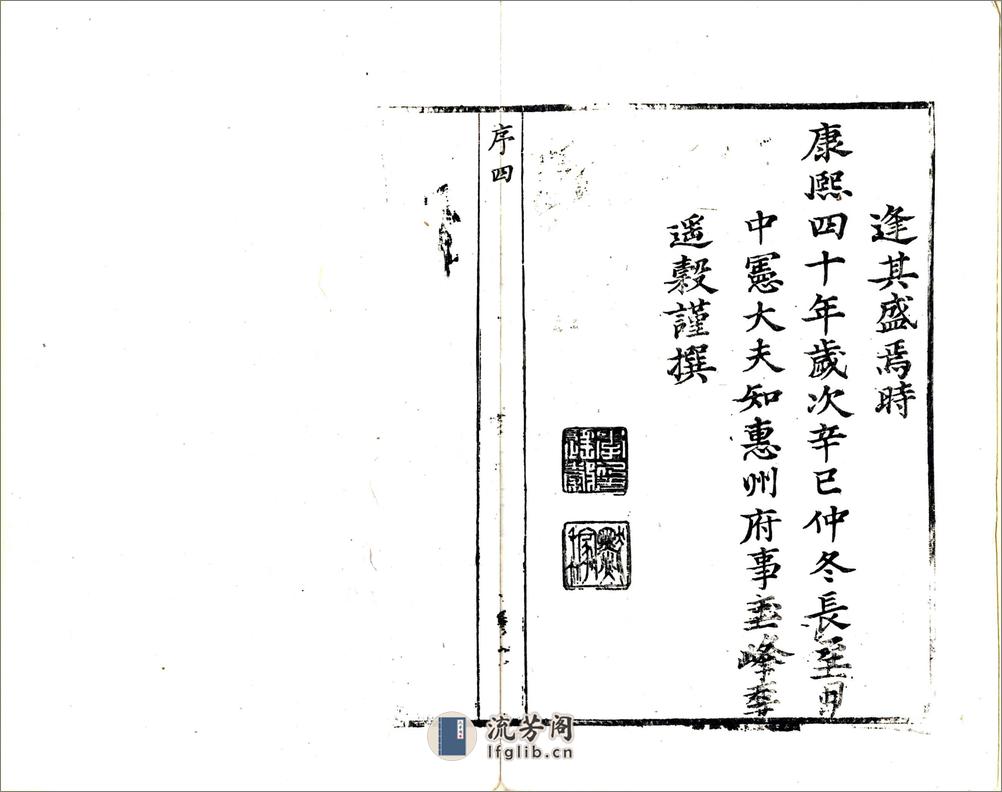 逢其盛焉時
康熙四十年歲次辛巳仲冬長至日
中憲大夫知惠州府事玉峰李
遥穀謹撰
序四
流芳阁
lfglib.cn